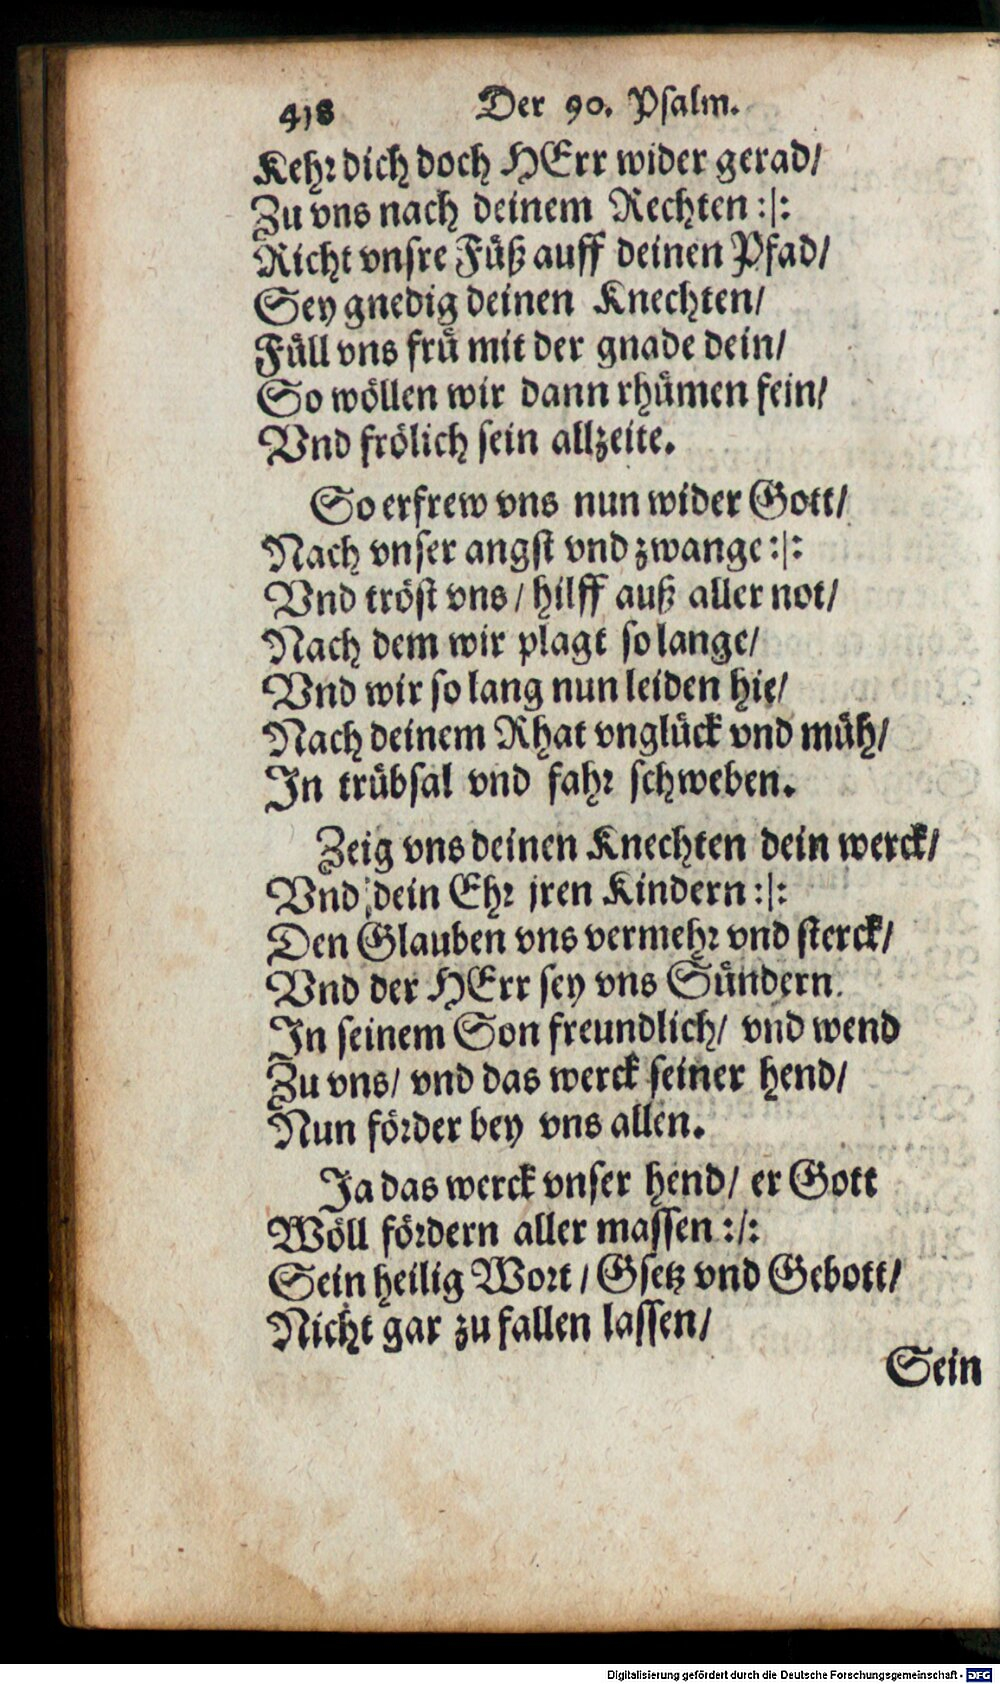 418 Der 90. Psalm.
Kehr dich doch HErr wider gerad/
Zu vns nach deinem Rechten :|:
Richt vnsre Füß auff deinen Pfad/
Sey gnedig deinen Knechten/
Füll vns frü mit der gnade dein/
So wöllen wir dann rhümen fein/
Vnd frölich sein allzeite.
So erfrew vns nun wider Gott/
Nach vnser angst vnd zwange :|:
Vnd tröst vns / hilff auß aller not/
Nach dem wir plagt so lange/
Vnd wir so lang nun leiden hie/
Nach deinem Rhat vnglück vnd müh/
In trübsal vnd fahr schweben.
Zeig vns deinen Knechten dein werck/
Vnd dein Ehr jren Kindern :|:
Den Glauben vns vermehr vnd sterck/
Vnd der HErr sey vns Sündern.
In seinem Son freundlich/ vnd wend
Zu vns/ vnd das werck seiner hend/
Nun förder bey vns allen.
Ja das werck vnser hend/ er Gott
Wöll fördern aller massen :/:
Sein heilig Wort / Gsetz vnd Gebott/
Nicht gar zu fallen lassen/
Sein
Digitalisierung gefördert durch die Deutsche Forschungsgemeinschaft - DFG